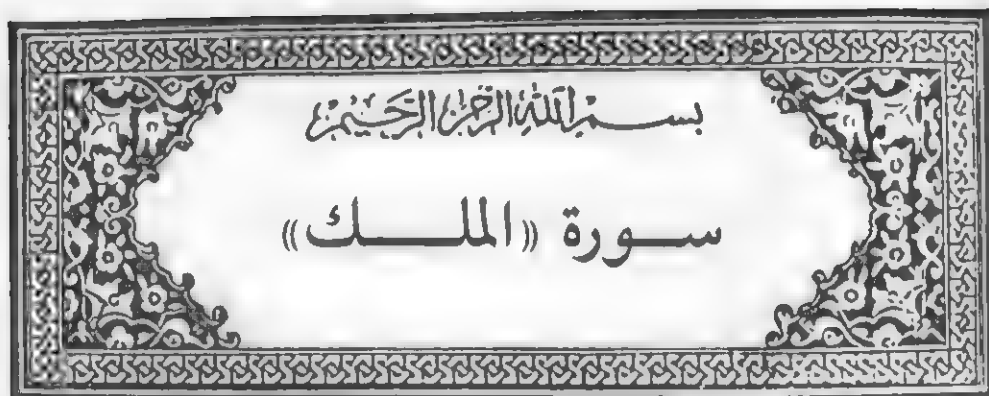 بسم الله الرحمن الرحيم
سورة «الملك»